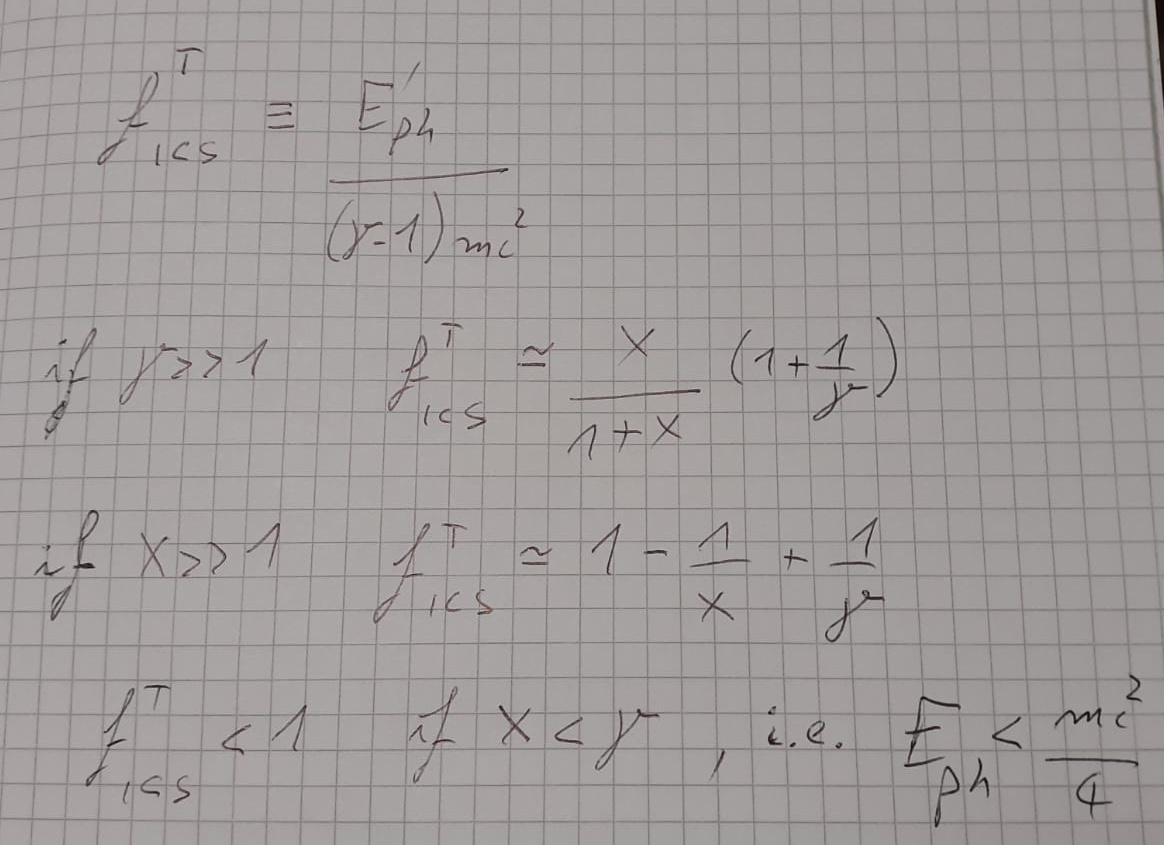 f^T_ICS ≡ E'_ph / (γ-1)mc²
if γ>>1 f^T_ICS ≃ X / 1+X (1+1/γ)
if X>>1 f^T_ICS ≃ 1 - 1/X + 1/γ
f^T_ICS < 1 if X < γ , i.e. E_ph < mc²/4